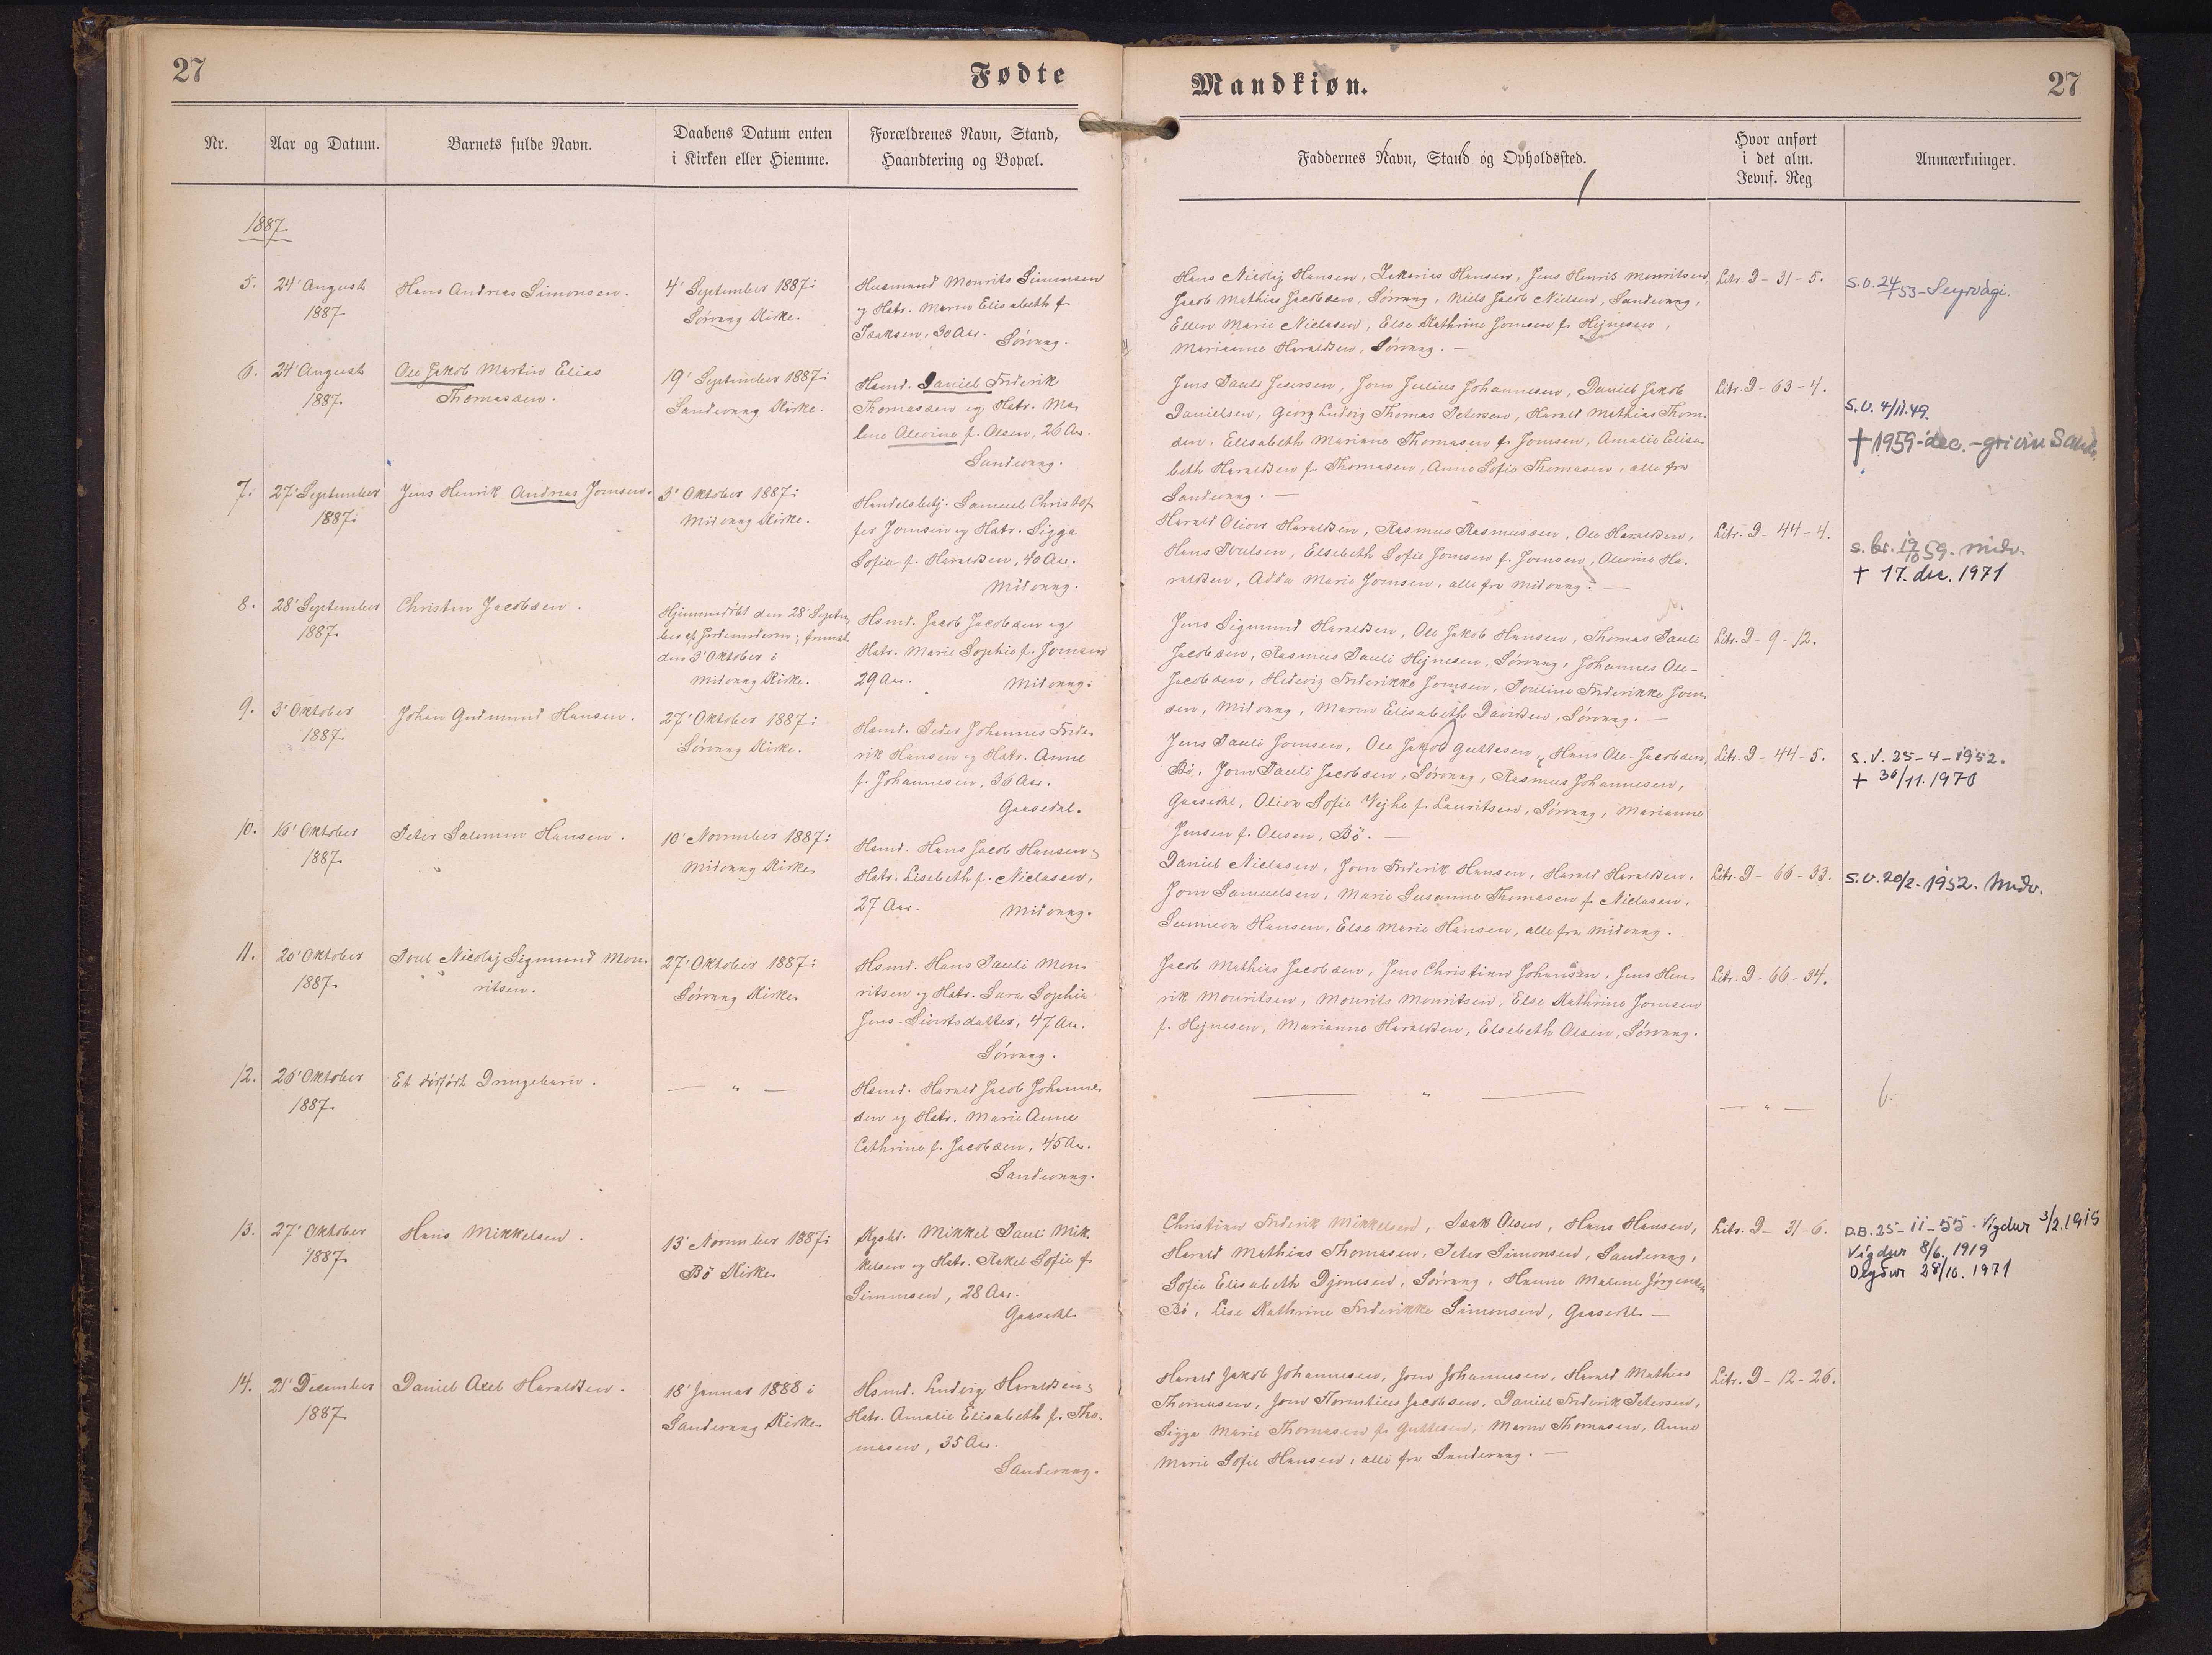 27
Fødte
Mandkiøn.
27
Nr.
Aar og Datum.
Barnets fulde Navn.
Daabens Datum enten
i Kirken eller Hiemme.
Forældrenes Navn, Stand,
Haandtering og Bopæl.
Faddernes Navn, Stand og Opholdssted.
Hvor anført
i det alm.
Jevnf. Reg
Anmærkninger.
1887.
5.
24' August
1887.
Hans Andreas Simonsen.
4' September 1887 i
Sörvaag Kirke.
Husmand Mourits Simonsen
og Hstr. Maren Elisabeth f.
Isaksen, 30 Aar. Sörvaag.
Hans Nicolaj Hansen, Zakarias Hansen, Jens Henrik Mouritsen,
Jacob Mathias Jacobsen, Sörvaag, Niels Jacob Nielsen, Sandevaag,
Ellen Marie Niclasen, Else Kathrine Joensen f. Hejnesen,
Marianne Haraldsen, Sörvaag. —
Litr. D - 31 - 5.
S.V. 24/1 53 - Seyrvági.
6.
24' August
1887.
Ole Jakob Martin Elias
Thomassen.
19' September 1887 i
Sandevaag Kirke.
Hsmd. Daniel Frederik
Thomassen og Hstr. Ma-
lene Olevine f. Olsen, 26 Aar.
Sandevaag.
Jens Pauli Petersen, Joen Julius Johannesen, Daniel Jakob
Danielsen, Georg Ludvig Thomas Petersen, Harald Mathias Thoma-
sen, Elisabeth Marianne Thomasen f. Joensen, Amalie Elisa-
beth Haraldsen f. Thomasen, Anne Sofie Thomasen, alle fra
Sandevaag. —
Litr. D - 63 - 4.
S.V. 4/11.49.
† 1959 - dec. - grivin Sandv.
7.
27' September
1887.
Jens Henrik Andreas Joensen.
3' Oktober 1887 i
Midvaag Kirke.
Handelsbetj. Samuel Christof-
fer Joensen og Hstr. Sigga
Sofie f. Haraldsen, 40 Aar.
Midvaag.
Harald Oliver Haraldsen, Rasmus Rasmussen, Ole Haraldsen,
Hans Poulsen, Elsebeth Sofie Joensen f. Joensen, Olevine Ha-
raldsen, Adda Marie Joensen, alle fra Midvaag. —
Litr. D - 44 - 4.
S. br. 19/10 59. Midv.
† 17. dec. 1971
8.
28' September
1887.
Christen Jacobsen.
Hjemmedöbt den 28' Septem-
ber af Jordemoderen; fremst.
den 3' Oktober i
Midvaag Kirke.
Hsmd. Jacob Jacobsen og
Hstr. Marie Sophie f. Joensen
29 Aar. Midvaag.
Jens Sigmund Haraldsen, Ole Jakob Hansen, Thomas Pauli
Jacobsen, Rasmus Pauli Hejnesen, Sörvaag, Johannes Ole-
Jacobsen, Hedevig Frederikke Joensen, Pouline Frederikke Joen-
sen, Midvaag, Maren Elisabeth Davidsen, Sörvaag. —
Litr. D - 9 - 12.
9.
3' Oktober
1887.
Johan Gudmund Hansen.
27' Oktober 1887 i
Sörvaag Kirke.
Hsmd. Peder Johannes Frede-
rik Hansen og Hstr. Anne
f. Johannesen, 36 Aar.
Gaasedal.
Jens Pauli Joensen, Ole Jakob Guttesen, Hans Ole-Jacobsen,
Bö, Joen Pauli Jacobsen, Sörvaag, Rasmus Johannesen,
Gaasedal, Olina Sofie Vejhe f. Lauritsen, Sörvaag, Marianne
Jensen f. Olesen, Bö. —
Litr. D - 44 - 5.
S.V. 25-4-1952.
† 30/11.1970
10.
16' Oktober
1887.
Peter Salomon Hansen.
10' November 1887 i
Midvaag Kirke.
Hsmd. Hans Jacob Hansen &
Hstr. Lisebeth f. Niclasen,
27 Aar. Midvaag.
Daniel Niclasen, Joen Frederik Hansen, Harald Haraldsen,
Joen Samuelsen, Marie Susanne Thomasen f. Niclasen,
Sunneva Hansen, Else Marie Hansen, alle fra Midvaag.
Litr. D - 66 - 33.
S.V. 20/2-1952. Midv.
11.
20' Oktober
1887.
Poul Nicolaj Sigmund Mou-
ritsen.
27' Oktober 1887 i
Sörvaag Kirke.
Hsmd. Hans Pauli Mou-
ritsen og Hstr. Sara Sophia
Jens-Sivertsdatter, 47 Aar.
Sörvaag.
Jacob Mathias Jacobsen, Jens Christian Johansen, Jens Hen-
rik Mouritsen, Mourits Mouritsen, Else Kathrine Joensen
f. Hejnesen, Marianne Haraldsen, Elsebeth Olsen, Sörvaag.
Litr. D - 66 - 34.
12.
26' Oktober
1887.
Et dödfödt Drengebarn.
— " —
Hsmd. Harald Jacob Johanne-
sen og Hstr. Marie Anne
Cathrine f. Jacobsen, 45 Aar.
Sandevaag.
— " —
— " —
6.
13.
27' Oktober
1887.
Hans Mikkelsen.
13' November 1887 i
Bö Kirke
Kgsbd. Mikkel Pauli Mik-
kelsen og Hstr. Rakel Sofie f.
Simonsen, 28 Aar.
Gaasedal
Christian Frederik Mikkelsen, Isak Olsen, Hans Hansen,
Harald Mathias Thomasen, Peter Simonsen, Sandevaag,
Sofie Elisabeth Djonesen, Sörvaag, Hanne Malene Jörgensen
Bö, Lise Kathrine Frederikke Simonsen, Gaasedal —
Litr. D - 31 - 6.
D.B. 25-11-55. Vigdur 3/2.1915
Vigdur 8/6. 1919
Oleydur 28/10. 1971
14.
21' December
1887.
Daniel Axel Haraldsen.
18' Januar 1888 i
Sandevaag Kirke
Hsmd. Ludvig Haraldsen &
Hstr. Amalie Elisabeth f. Tho-
masen, 35 Aar.
Sandevaag.
Harald Jakob Johannesen, Joen Johannesen, Harald Mathias
Thomasen, Joen Jacobsen, Daniel Frederik Petersen,
Sigga Marie Thomasen f. Guttesen, Maren Thomasen, Anne
Marie Sofie Hansen, alle fra Sandevaag. —
Litr. D - 12 - 26.